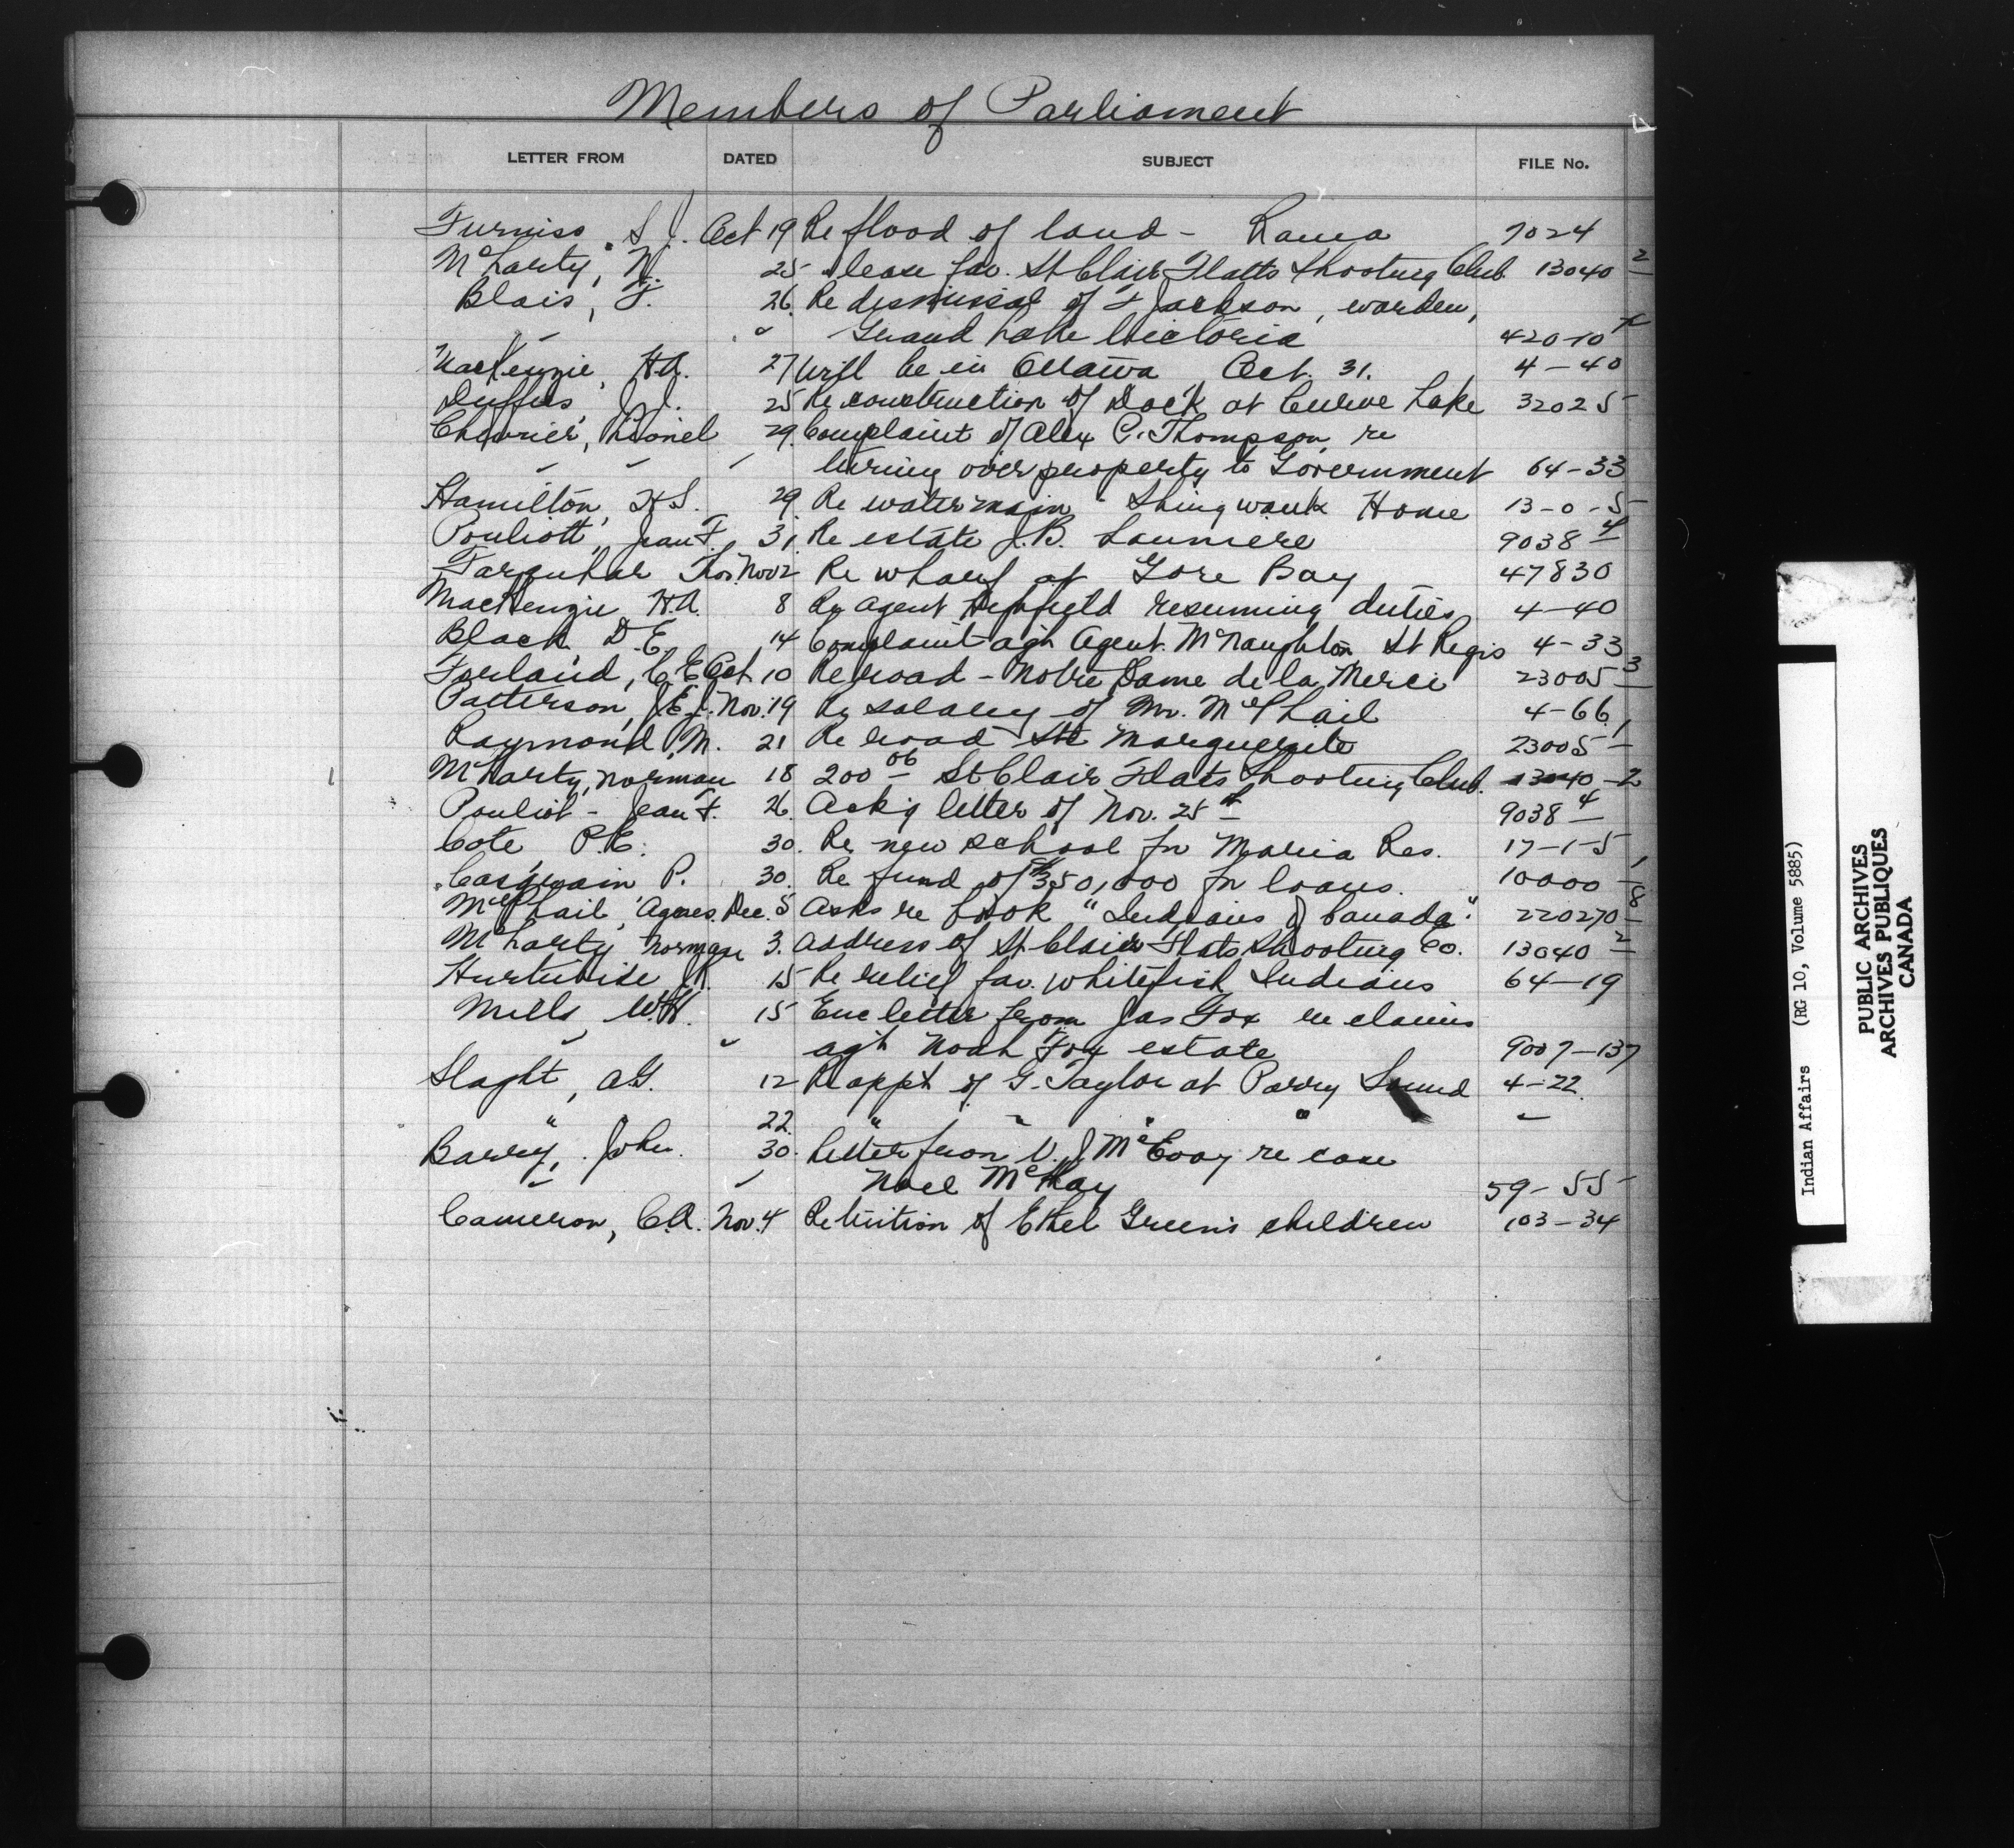 Members of Parliament
LETTER FROM DATED SUBJECT FILE No.
Furniss, S J. Oct 19 Re flood of land - Rama 7024
McLarty, N. 25 " lease fav. St Clair Flatts Shooting Club. 13040 2
Blais, F. 26. Re dismissal of F Jackson, warden,
" " Grand Lake Victoria 420-10 x
MacKenzie, H.A. 27 Will be in Ottawa Oct. 31. 4-40
Duffus, J.J. 25 Re construction of Dock at Curve Lake 32025
Chevrier, Lionel 29. Complaint of Alex C. Thompson, re
" " " turning over property to Government 64-33
Hamilton, H.S. 29. Re watermain - Shingwauk Home 13-0-5
Pouliott, Jean F. 31. Re estate J.B. Launiere 9038 4
Farquhar Thos. Nov 2 Re wharf at Gore Bay 47830
MacKenzie, H.A. 8 Re Agent resuming duties 4-40
Black, D.E. 14 Complaint agst Agent McNaughton St Regis 4-33
Ferland, C.E. Oct. 10 Re road - Notre Dame de la Merci 23005 3
Patterson, J.E.J. Nov. 19 Re salary of Mr. McPhail 4-66
Raymond, M. 21 Re road Ste Marguerite 23005 1
McLarty, Norman 18 200 00 St Clair Flats Shooting Club. 13040-2
Pouliot - Jean F. 26. Ackg letter of Nov. 25th 9038 4
Cote P.E. 30. Re new school for Maria Res. 17-1-5
Casgrain P. 30. Re fund of $350,000 for loans. 10000 1
McPhail, Agnes. Dec. 5 Asks re book "Indians of Canada". 220270 8
McLarty Norman 3. Address of St Clair Flats Shooting Co. 13040 2
Hurtubise J.R. 15 Re relief fav. Whitefish Indians 64-19
Mills, W.H. 15 Enc letter from Jas Fox re claims
" " agst Noah Fox estate 9007-137
Slaght, A.G. 12 Re appt of G. Taylor at Parry Sound 4-22.
" 22. " " " "
Barry, John. 30. Letter from D. J McEvoy re case
" " Noel McKay 59-55
Cameron, C.A. Nov. 4 Re tuition of Ethel Green's children 103-34
Indian Affairs (RG 10, Volume 5885)
PUBLIC ARCHIVES
ARCHIVES PUBLIQUES
CANADA